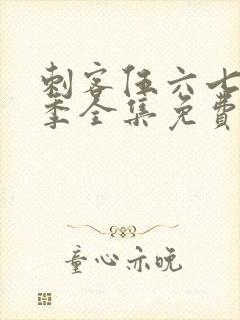 刺客伍六七
季全集免费
童心亦晚